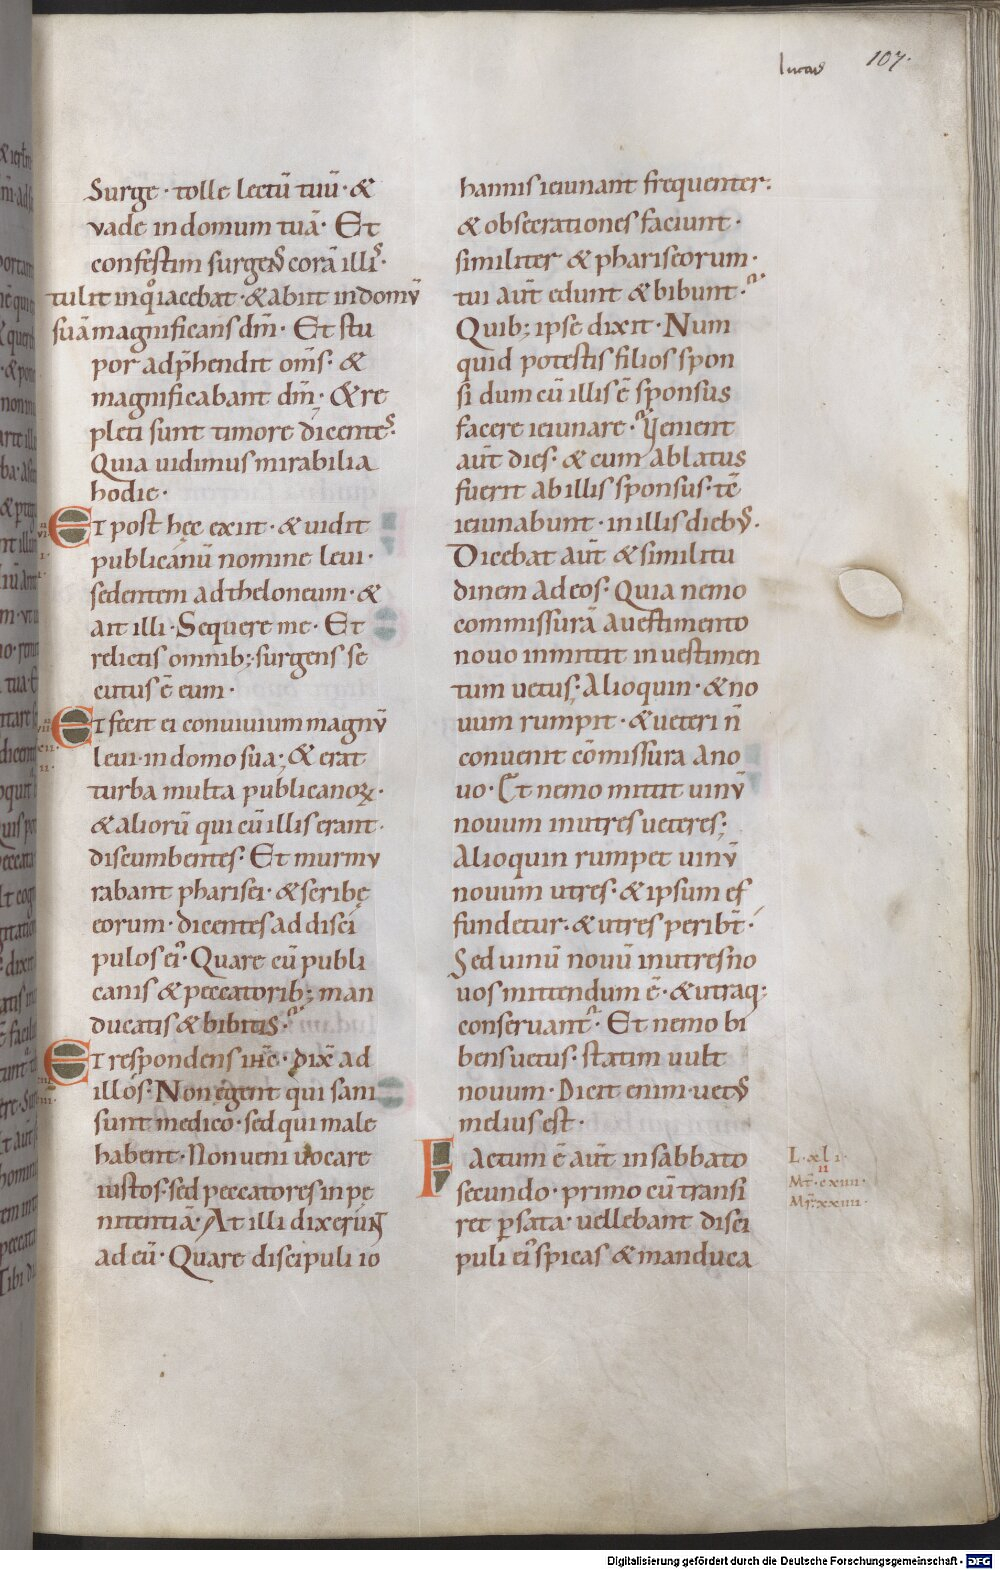 lucas 107.
Surge · tolle lectū tuū · &
vade in domum tuā · Et
confestim surgens corā illis ·
tulit in q̊ iacebat · & abiit in domū
suā magnificans dm̄ · Et stu
por adp̄hendit om̄s · &
magnificabant dm̄ · & re
pleti sunt timore dicentes ·
Quia uidimus mirabilia
hodie ·
Et post hęc exiit · & uidit
publicanū nomine leui ·
sedentem ad theloneum · &
ait illi · Sequere me · Et
relictis omnib; surgens se
cutus ē eum ·
Et fecit ei conuiuium magnū
leui · in domo sua; & erat
turba multa publicanoꝝ ·
& aliorū qui cū illis erant ·
discumbentes · Et murmu
rabant pharisei · & scribę
eorum · dicentes ad disci
pulos ei᾽ · Quare cū publi
canis & peccatorib; man
ducatis & bibitis ·
Et respondens ihc̄ · dix̄ ad
illos · Non egent qui sani
sunt medico · sed qui male
habent · Non ueni uocare
iustos · sed peccatores in pe
nitentiā · At illi dixerunt
ad eū · Quare discipuli io
hannis ieiunant frequenter ·
& obsecrationes faciunt ·
similiter & phariseorum ·
tui aūt edunt & bibunt ·
Quib; ipse dixit · Num
quid potestis filios spon
si dum cū illis ē sponsus
facere ieiunare · Uenient
aūt dies · & cum ablatus
fuerit ab illis sponsus · tē
ieiunabunt · in illis dieb; ·
Dicebat aūt & similitu
dinem ad eos · Quia nemo
commissurā a uestimento
nouo inmittit in uestimen
tum uetus; Alioquin · & no
uum rumpit · & ueteri n̄
conuenit cōmissura a no
uo · Et nemo mittit uinū
nouum in utres ueteres;
Alioquin rumpet uinū
nouum utres · & ipsum ef
fundetur · & utres peribt̄ ·
Sed uinū nouū in utres no
uos mittendum ē · & utraq;
conseruant᾽ · Et nemo bi
bens uetus · statim uult
nouum · Dicit enim · uetus
melius est ·
Factum ē aūt in sabbato
secundo · primo cū transi
ret ꝑ sata · uellebant disci
puli ei᾽ spicas & manduca
L · xli ·
II
Mt̄ · cxiiii ·
Mr̄ · xxiiii ·
Digitalisierung gefördert durch die Deutsche Forschungsgemeinschaft - DFG